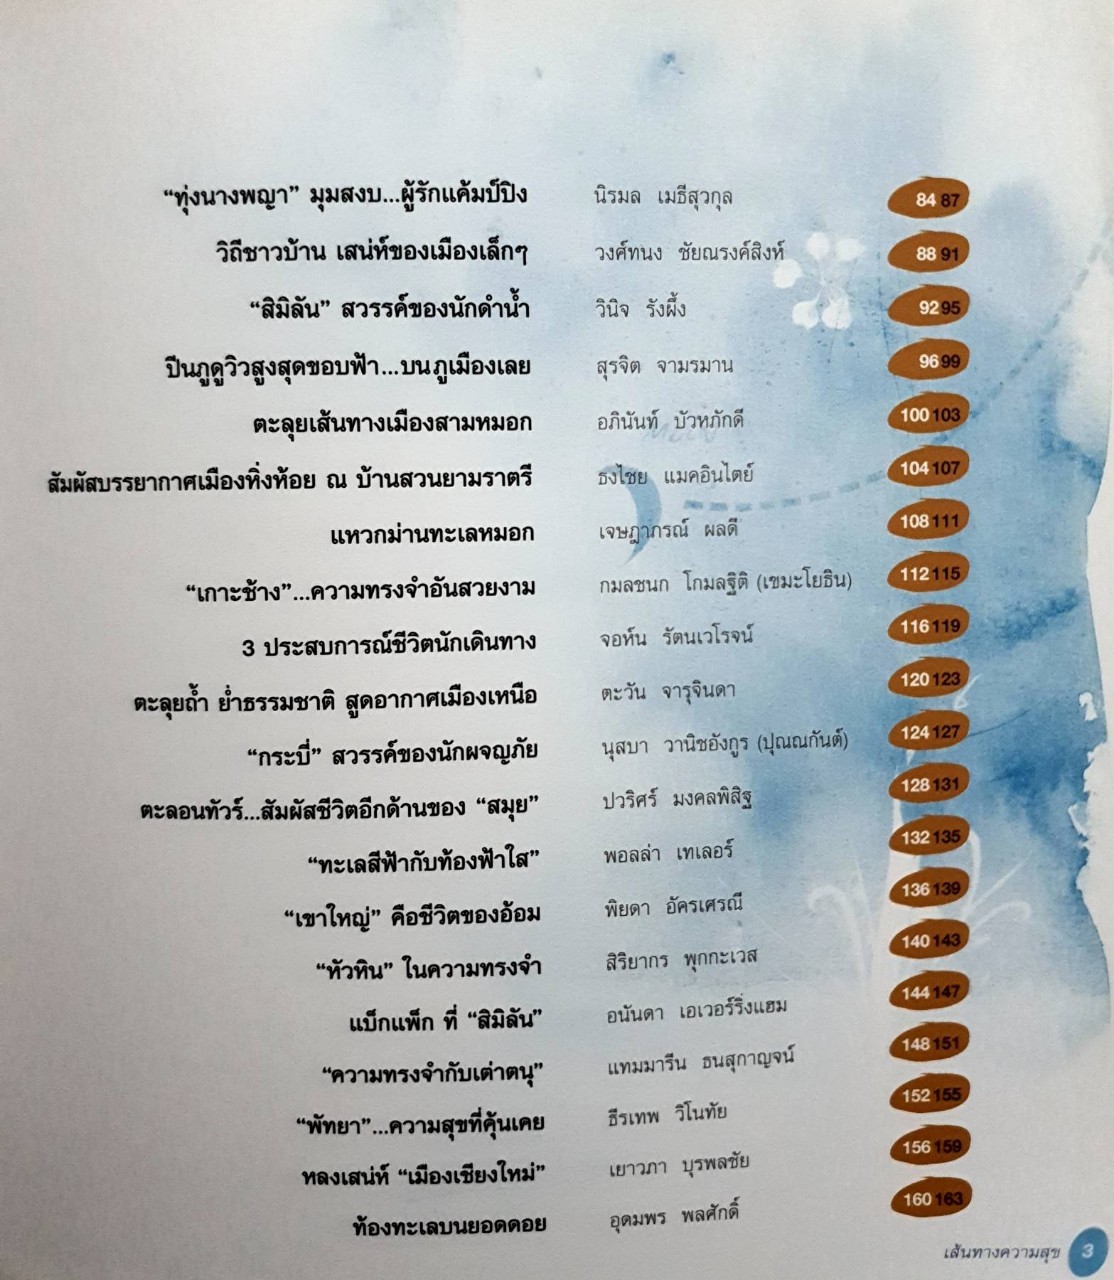 “ทุ่งนางพญา” มุมสงบ...ผู้รักแค้มป์ปิง นิรมล เมธีสุวกุล 84 87
วิถีชาวบ้าน เสน่ห์ของเมืองเล็กๆ วงศ์ทนง ชัยณรงค์สิงห์ 88 91
“สิมิลัน” สวรรค์ของนักดำน้ำ วินิจ รังผึ้ง 92 95
ปีนภูดูวิวสูงสุดขอบฟ้า...บนภูเมืองเลย สุรจิต จามรมาน 96 99
ตะลุยเส้นทางเมืองสามหมอก อภินันท์ บัวหภักดี 100 103
สัมผัสบรรยากาศเมืองหิ่งห้อย ณ บ้านสวนยามราตรี ธงไชย แมคอินไตย์ 104 107
แหวกม่านทะเลหมอก เจษฎาภรณ์ ผลดี 108 111
“เกาะช้าง”...ความทรงจำอันสวยงาม กมลชนก โกมลฐิติ (เขมะโยธิน) 112 115
3 ประสบการณ์ชีวิตนักเดินทาง จอห์น รัตนเวโรจน์ 116 119
ตะลุยถ้ำ ย่ำธรรมชาติ สูดอากาศเมืองเหนือ ตะวัน จารุจินดา 120 123
“กระบี่” สวรรค์ของนักผจญภัย นุสบา วานิชอังกูร (ปุณณกันต์) 124 127
ตะลอนทัวร์...สัมผัสชีวิตอีกด้านของ “สมุย” ปวริศร์ มงคลพิสิฐ 128 131
“ทะเลสีฟ้ากับท้องฟ้าใส” พอลล่า เทเลอร์ 132 135
“เขาใหญ่” คือชีวิตของอ้อม พิยดา อัครเศรณี 136 139
“หัวหิน” ในความทรงจำ สิริยากร พุกกะเวส 140 143
แบ็กแพ็ก ที่ “สิมิลัน” อนันดา เอเวอร์ริ่งแฮม 144 147
“ความทรงจำกับเต่าตนุ” แทมมารีน ธนสุกาญจน์ 148 151
“พัทยา”...ความสุขที่คุ้นเคย ธีรเทพ วิโนทัย 152 155
หลงเสน่ห์ “เมืองเชียงใหม่” เยาวภา บุรพลชัย 156 159
ท้องทะเลบนยอดดอย อุดมพร พลศักดิ์ 160 163
เส้นทางความสุข 3